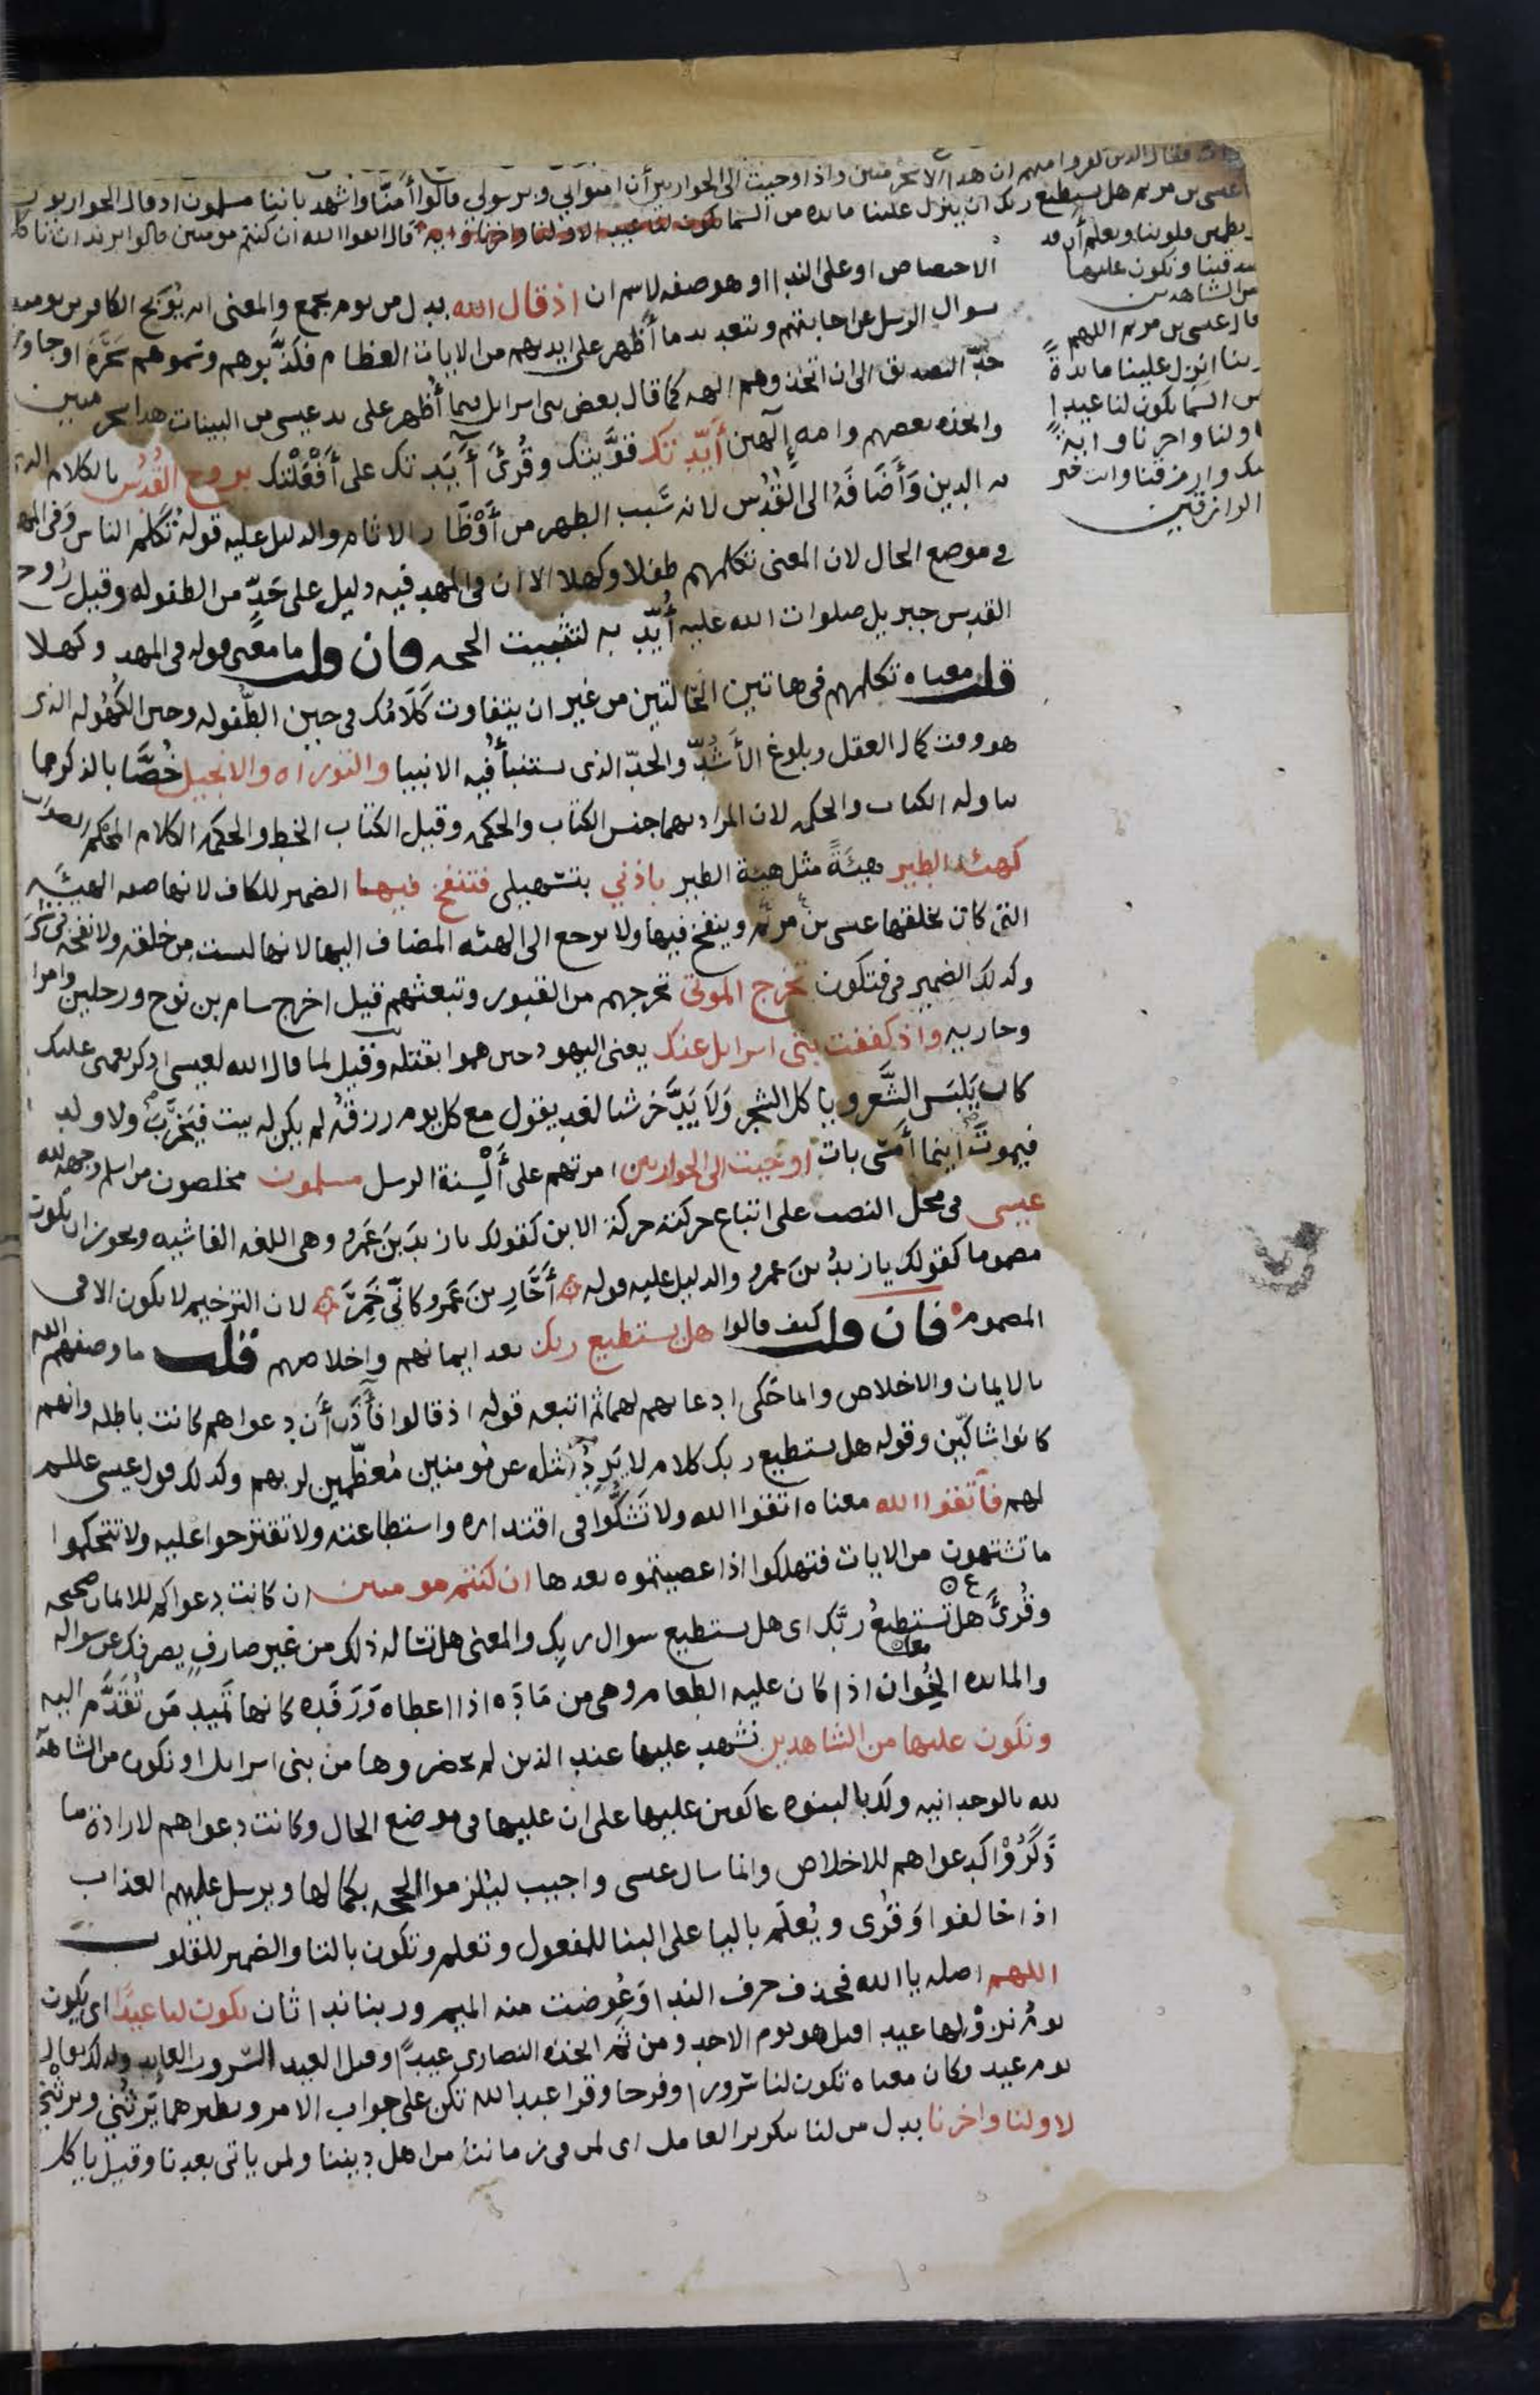 فقال الذين كفروا منهم ان هذا الا سحر مبين واذ اوحيت الى الحواريين أن امنوا بي وبرسولي قالوا أمنّا واشهد باننا مسلمون اذ قال الحواريون
عيسى بن مريم هل يستطيع ربك ان ينزل علينا مايده من السما تكون لنا عيدا لاولنا واخرنا وايه قال اتقوا الله ان كنتم مومنين قالوا نريد ان ناكل
وتطمين قلوبنا ونعلم أن قد
صدقتنا ونكون عليها
من الشاهدين
قال عيسى بن مريم اللهم
ربنا انزل علينا مايدةً
من السما تكون لنا عيدا
لاولنا واخرنا وايةً
منك وارزقنا وانت خير
الرازقين
الاختصاص او على الندا او هو صفه لاسم ان اذ قال الله بدل من يوم يجمع والمعنى انه يُوَبخ الكافرين يوميذ
بسوال الرسل عن اجابتهم وبتعديد ما أظهر على ايديهم من الايات العظام فكذّبوهم وسموهم سَحَرَة او جاوزوا
حدّ التصديق الى ان اتخذوهم الهه كما قال بعض بنى اسرايل فيما أظهر على يد عيسى من البينات هذا سحر مبين
واتخذه بعضهم وامه إلٓهين أيّدتك قوَّيتك وقُرئَ أٓيَدتك على أَفْعَلْتك بروح القُدُس بالكلام الذي
به الدين وَأَضَافَهُ الى القُدُس لانه سَبب الطهر من أَوْضَار الاثام والدليل عليه قولهُ تكلم الناس وَفى المهد
في موضع الحال لان المعنى تكلمهم طفلا وكهلا الا ان فى المهد فيه دليل على حَدٍّ من الطفوله وقيل رُوح
القدس جبريل صلوات الله عليه أُيّد به لتثبيت الحجه فان قلت ما معنى قوله فى المهد وكهلا
قلت معناه تكلمهم فى هاتين الحَالتين من غير ان يتفاوت كَلَامُك فى حين الطُفوله وحين الكُهُوله الذى
هو وقت كمال العقل وبلوغ الأَشُدّ والحدّ الذى يستنبأُ فيه الانبيا والتوراه والانجيل خُصَّا بالذكر مما
تناوله الكتاب والحكمه لان المراد بهما جنس الكتاب والحكمه وقيل الكتاب الخط والحكمه الكلام المحكم الصواب
كهيئه الطير هيئَةً مثل هيئة الطير باذني بتسهيلى فتنفخ فيها الضمير للكاف لانها صفه الهيئَه
التى كان يخلقها عيسى بن مريم وينفخ فيها ولا يرجع الى الهيئه المضاف اليها لانها ليست مِن خلقه ولا نفخه فى شَى
وكذلك الضمير فى فتكون تخرج الموتى تخرجهم من القبور وتبعثهم قيل اخرج سام بن نوح ورجلين وامراه
وجاريه واذ كففت بنى اسرايل عنك يعنى اليهود حين هموا بقتله وقيل لما قال الله لعيسى اذكر نعمتى عليك
كان يَلبَس الشَّعر ويا كل الشجر وَلا يَدَّخر شيا لغدٍ يقول مع كل يوم رزقُه لم يكن له بيت فيَخرَبَ ولا ولد
فيموتَ اينما أمسَى بات أوحيت الى الحواريين امرتهم على أَلْسِنة الرسل مسلمون مخلصون من اسلم وجهه لله
عيسى فى محل النصب على اتباع حركته حركة الابن كقولك يا زيدَ بنَ عَمرو وهى اللغه الفاشيه ويجوز ان تكون
مضموما كقولك يا زيدُ بنَ عمرو والدليل عليه قوله أَحَارِ بنَ عَمرو كانّى خَمِرَ لان الترخيم لا يكون الا فى
المضموم فان قلت كيف قالوا هل يستطيع ربك بعد ايمانهم واخلاصهم قلت ما وصفهم الله
بالايمان والاخلاص وانما حَكى ادعاهم لهما ثم اتبعه قوله اذ قالوا فآذَن أَن دعواهم كانت باطله وانهم
كانوا شاكّين وقوله هل يستطيع ربك كلام لا يَرِدُ مثله عن مُومنين مُعظّمين لربهم وكذلك قول عيسى عليه السلم
لهم فَاتقوا الله معناه اتقوا الله ولا تَشكُّوا فى اقتداره واستطاعته ولا تقترحوا عليه ولا تتحكموا
ما تشتهون من الايات فتهلكوا اذا عصيتموه بعدها ان كنتم مومنين ان كانت دعواكم للايمان صحيحه
وقُرئَ هل تستطيعُ ربَّك اى هل يستطيع سوال ربك والمعنى هل تساله ذلك من غير صارفٍ يصرفك عن سواله
والمايده الخُوان اذا كان عليه الطعام وهى من مَادَه اذا اعطاه وَرَفَده كانها تَميد مَن تُقَدَّم اليه
ونكون عليها من الشاهدين نشهد عليها عند الذين لم يحضروها من بنى اسرايل او نكون من الشاهدين
لله بالوحدانيه ولك بالنبوه عاكفين عليها على ان عليها فى موضع الحال وكانت دعواهم لارادة ما
ذَكَرُوْا كدعواهم للاخلاص وانما سال عيسى واجيب ليُلزموا الحجه بكمالها ويرسل عليهم العذاب
اذا خالفوا وَقُرى ويُعلَم باليا على البنا للمفعول وتعلم وتكون بالتا والضمير للقلوب
اللهم اصله يا الله فحذف حرف الندا وَعُوضت منه الميم وربنا ندا ثان تكون لنا عيدًا اى يكون
يومُ نزولها عيدا قيل هو يوم الاحد ومن ثم اتخذه النصارى عيدًا وقيل العيد السّرور العايد ولذلك يقال
يوم عيد وكان معناه تكون لنا سُرورا وفرحا وقرا عبد الله تكن على جواب الامر ونظيرهما يَرثُنِي ويرثْنِي
لاولنا واخرنا بدل من لنا بتكرير العامل اى لمن فى زماننا من اهل ديننا ولمن ياتى بعدنا وقيل ياكل